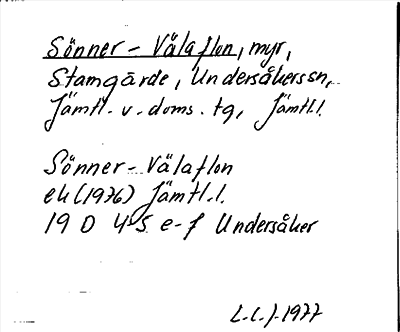 Sönner-Välaflon, myr,
Stamgärde, Undersåkerssn,
Jämtl. v. doms. tg, Jämtl.l.
Sönner-Välaflon
ek (1976) Jämtl.l.
19 D 4-5 e-f Undersåker
L.L.J. 1977